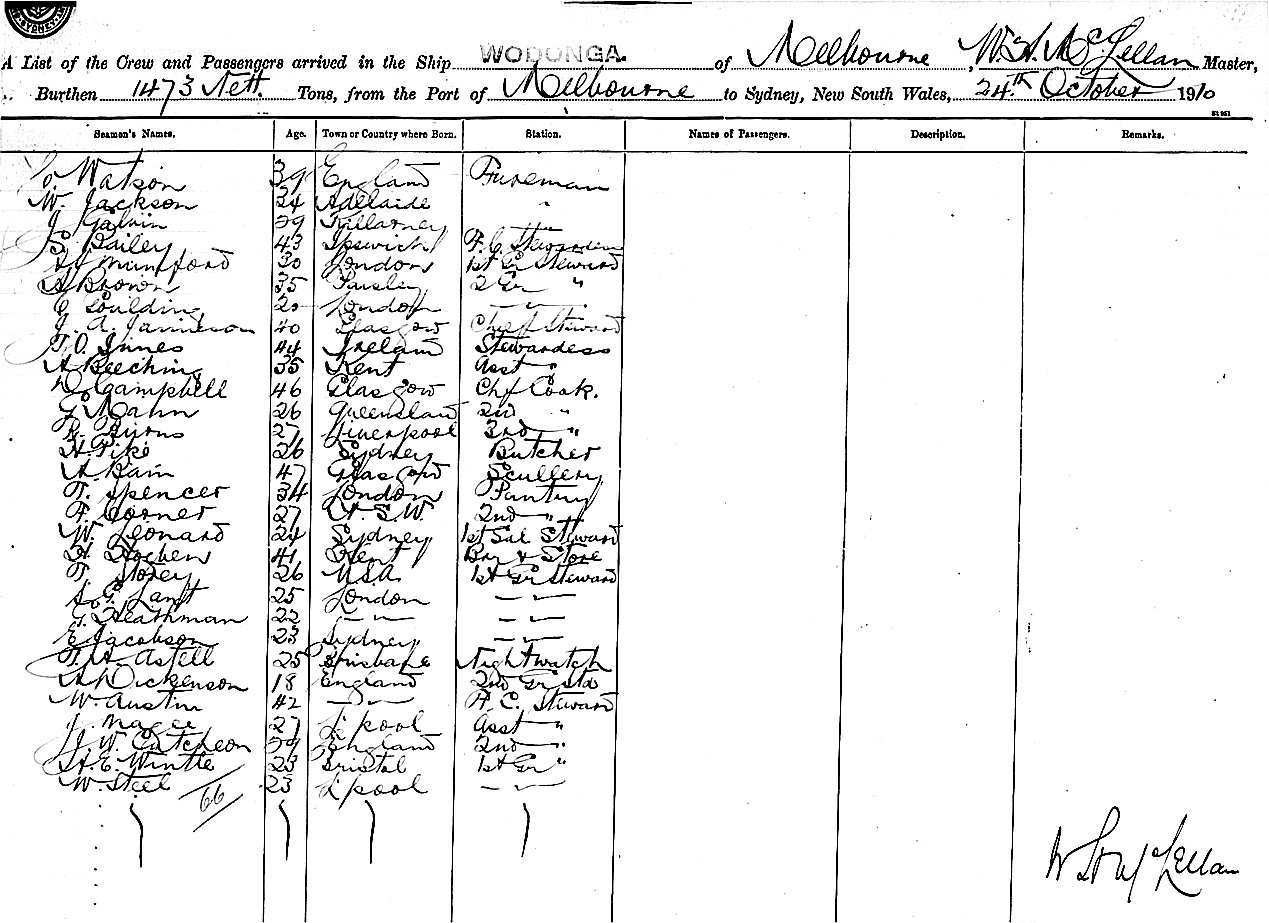 SYDNEY
A List of the Crew and Passengers arrived in the Ship WODONGA. of Melbourne, W. H. McLellan Master,
Burthen 1473 Nett. Tons, from the Port of Melbourne to Sydney, New South Wales, 24th October 1910
Seamen's Names. Age. Town or Country where Born. Station. Names of Passengers. Description. Remarks.
Watson 39 England Fireman
W. Jackson 24 Adelaide "
J. Galvin 39 Killarney
S. Bailey 43 Ipswich F.C. Stewardess
Mumford 30 London 1st Gr Steward
A Brown 35 Paisley 2 Gr "
Goulding 20 London — " —
J. A. Jamieson 40 Glasgow Chief Steward
T.O. Innes 44 Ireland Stewardess
A Beeching 35 Kent Asst "
D. Campbell 46 Glasgow Chf Cook.
G Mann 26 Queensland 2nd "
R. Burns 27 Liverpool 3rd "
H. Pike 26 Sydney Butcher
A. Bain 47 Glasgow Scullery
T. Spencer 34 London Pantry
F. Corner 27 N.S.W. 2nd "
W. Leonard 24 Sydney 1st Sal Steward
H. 41 Kent Bar & Store
T. Storey 26 U.S.A. 1st Gr Steward
25 London — " —
G. Heathman 22 — " — — " —
E Jacobson 23 Sydney — " —
T. H. Astell 25 Brisbane Nightwatch
A Dickenson 18 England 2nd Gr Std
W. Austin 42 — " — F.C. Steward
J. Magee 27 L'pool Asst "
J. W. Cutcheon 39 England 2nd "
H. E. Wintle 23 Bristol 1st Gr "
W. Steel 23 L'pool — " —
66
McLellan